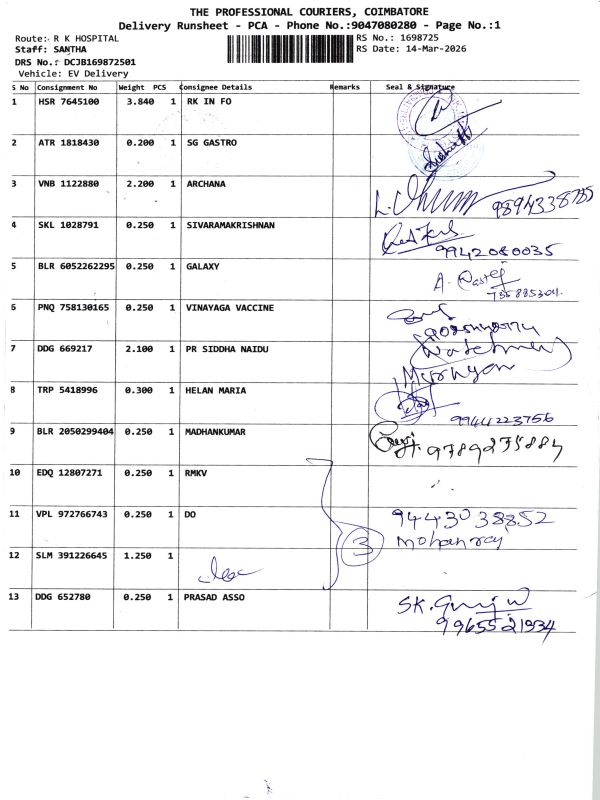 THE PROFESSIONAL COURIERS, COIMBATORE
Delivery Runsheet - PCA - Phone No.:9047080280 - Page No.:1
Route: R K HOSPITAL RS No.: 1698725
Staff: SANTHA RS Date: 14-Mar-2026
DRS No.: DCJB169872501
Vehicle: EV Delivery
S No Consignment No Weight PCS Consignee Details Remarks Seal & Signature
1 HSR 7645100 3.840 1 RK IN FO
2 ATR 1818430 0.200 1 SG GASTRO
3 VNB 1122880 2.200 1 ARCHANA 9894338785
4 SKL 1028791 0.250 1 SIVARAMAKRISHNAN 9942080035
5 BLR 6052262295 0.250 1 GALAXY A.
6 PNQ 758130165 0.250 1 VINAYAGA VACCINE
7 DDG 669217 2.100 1 PR SIDDHA NAIDU (Watchmen)
Murugan
8 TRP 5418996 0.300 1 HELAN MARIA 9944223756
9 BLR 2050299404 0.250 1 MADHANKUMAR 9789275884
10 EDQ 12807271 0.250 1 RMKV
11 VPL 972766743 0.250 1 DO 9443038852
mohanraj
3
12 SLM 391226645 1.250 1
13 DDG 652780 0.250 1 PRASAD ASSO SK.
9965521934